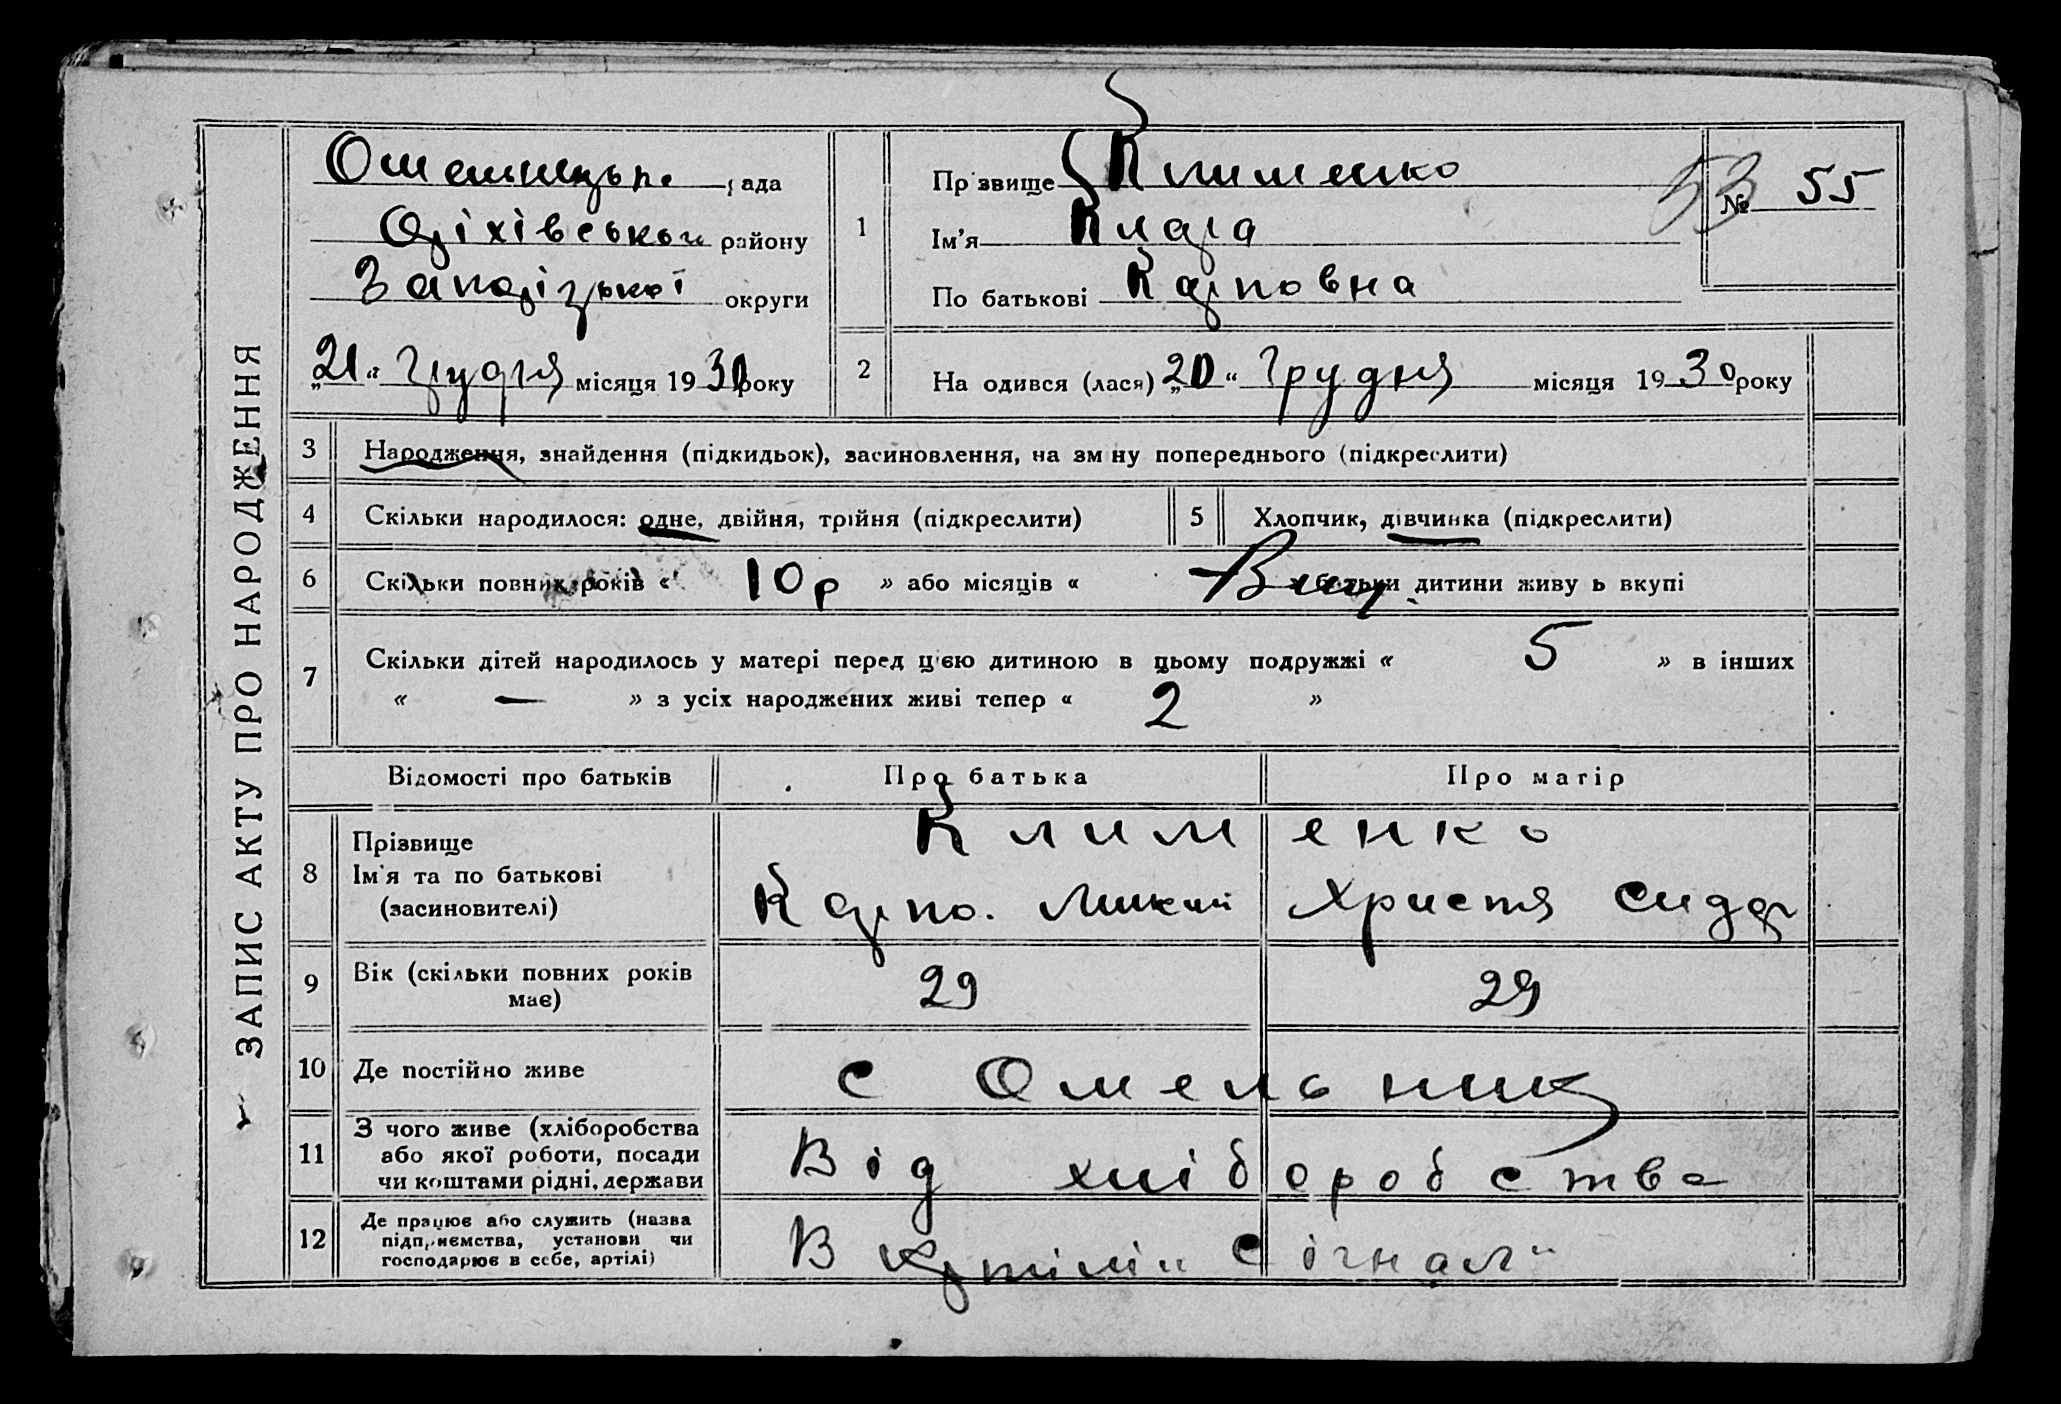 ЗАПИС АКТУ ПРО НАРОДЖЕННЯ
Омельницька рада
Оріхівського району
Запорізької округи
„21“ Грудня місяця 1930 року
1
Прізвище Клименко
Ім’я Клара
По батькові Карповна
53
№ 55
2
На одився (лася) „20“ Грудня місяця 1930 року
3 Народження, знайдення (підкидьок), засиновлення, на зм ну попереднього (підкреслити)
4 Скільки народилося: одне, двійня, трійня (підкреслити)
5 Хлопчик, дівчинка (підкреслити)
6 Скільки повних років « 10 р » або місяців « батьки дитини живу ь вкупі
7 Скільки дітей народилось у матері перед цією дитиною в цьому подружжі « 5 » в інших
« — » з усіх народжених живі тепер « 2 »
Відомості про батьків Про батька Про матір
8 Прізвище
Ім’я та по батькові
(засиновителі)
Клименко
Карпо. Микит Христя Сидор
9 Вік (скільки повних років
має)
29 29
10 Де постійно живе
с Омельник
11 З чого живе (хліборобства
або якої роботи, посади
чи коштами рідні, держави
Від хліборобства
12 Де працює або служить (назва
підприємства, установи чи
господарює в себе, артілі)
В Артілі „Сігнал“